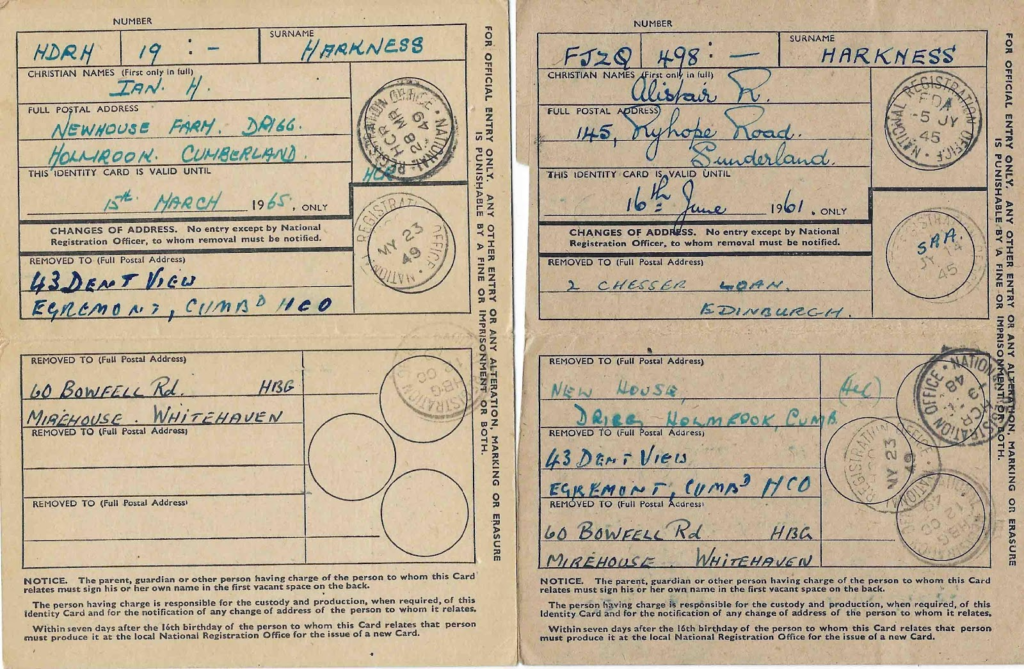 NUMBER
HDRH 19 : -
SURNAME
HARKNESS
CHRISTIAN NAMES (First only in full)
IAN. H.
FULL POSTAL ADDRESS
NEWHOUSE FARM. DRIGG.
HOLMROOK. CUMBERLAND.
THIS IDENTITY CARD IS VALID UNTIL
15th MARCH 1965. ONLY
NATIONAL REGISTRATION OFFICE
HCR
28 MR
49
CHANGES OF ADDRESS. No entry except by National
Registration Officer, to whom removal must be notified.
REMOVED TO (Full Postal Address)
43 DENT VIEW
EGREMONT, CUMBD HCO
MY 23
49
REMOVED TO (Full Postal Address)
60 BOWFELL Rd. HBG
MIREHOUSE. WHITEHAVEN
REMOVED TO (Full Postal Address)
REMOVED TO (Full Postal Address)
FOR OFFICIAL ENTRY ONLY. ANY OTHER ENTRY OR ANY ALTERATION, MARKING OR ERASURE
IS PUNISHABLE BY A FINE OR IMPRISONMENT OR BOTH.
NOTICE. The parent, guardian or other person having charge of the person to whom this Card
relates must sign his or her own name in the first vacant space on the back.
The person having charge is responsible for the custody and production, when required, of this
Identity Card and for the notification of any change of address of the person to whom it relates.
Within seven days after the 16th birthday of the person to whom this Card relates that person
must produce it at the local National Registration Office for the issue of a new Card.
NUMBER
FJZQ 498 : -
SURNAME
HARKNESS
CHRISTIAN NAMES (First only in full)
Alistair R.
FULL POSTAL ADDRESS
145, Ryhope Road.
Sunderland.
THIS IDENTITY CARD IS VALID UNTIL
16th June 1961. ONLY
NATIONAL REGISTRATION OFFICE
FDA
-5 JY
45
CHANGES OF ADDRESS. No entry except by National
Registration Officer, to whom removal must be notified.
REMOVED TO (Full Postal Address)
2 CHESSER LOAN.
EDINBURGH.
SRA
JY 14
45
REMOVED TO (Full Postal Address)
NEW HOUSE,
DRIGG, HOLMROOK, CUMB
NATIONAL REGISTRATION OFFICE
HCR
48
REMOVED TO (Full Postal Address)
43 DENT VIEW
EGREMONT, CUMBD HCO
MY 23
49
REMOVED TO (Full Postal Address)
60 BOWFELL Rd HBG
MIREHOUSE WHITEHAVEN
FOR OFFICIAL ENTRY ONLY. ANY OTHER ENTRY OR ANY ALTERATION, MARKING OR ERASURE
IS PUNISHABLE BY A FINE OR IMPRISONMENT OR BOTH.
NOTICE. The parent, guardian or other person having charge of the person to whom this Card
relates must sign his or her own name in the first vacant space on the back.
The person having charge is responsible for the custody and production, when required, of this
Identity Card and for the notification of any change of address of the person to whom it relates.
Within seven days after the 16th birthday of the person to whom this Card relates that person
must produce it at the local National Registration Office for the issue of a new Card.